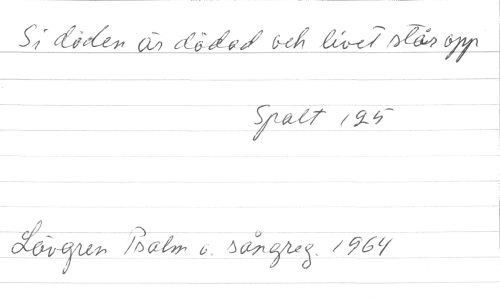 Si döden är dödad och livet står opp
Spalt 125
Lövgren Psalm o. sångreg. 1964